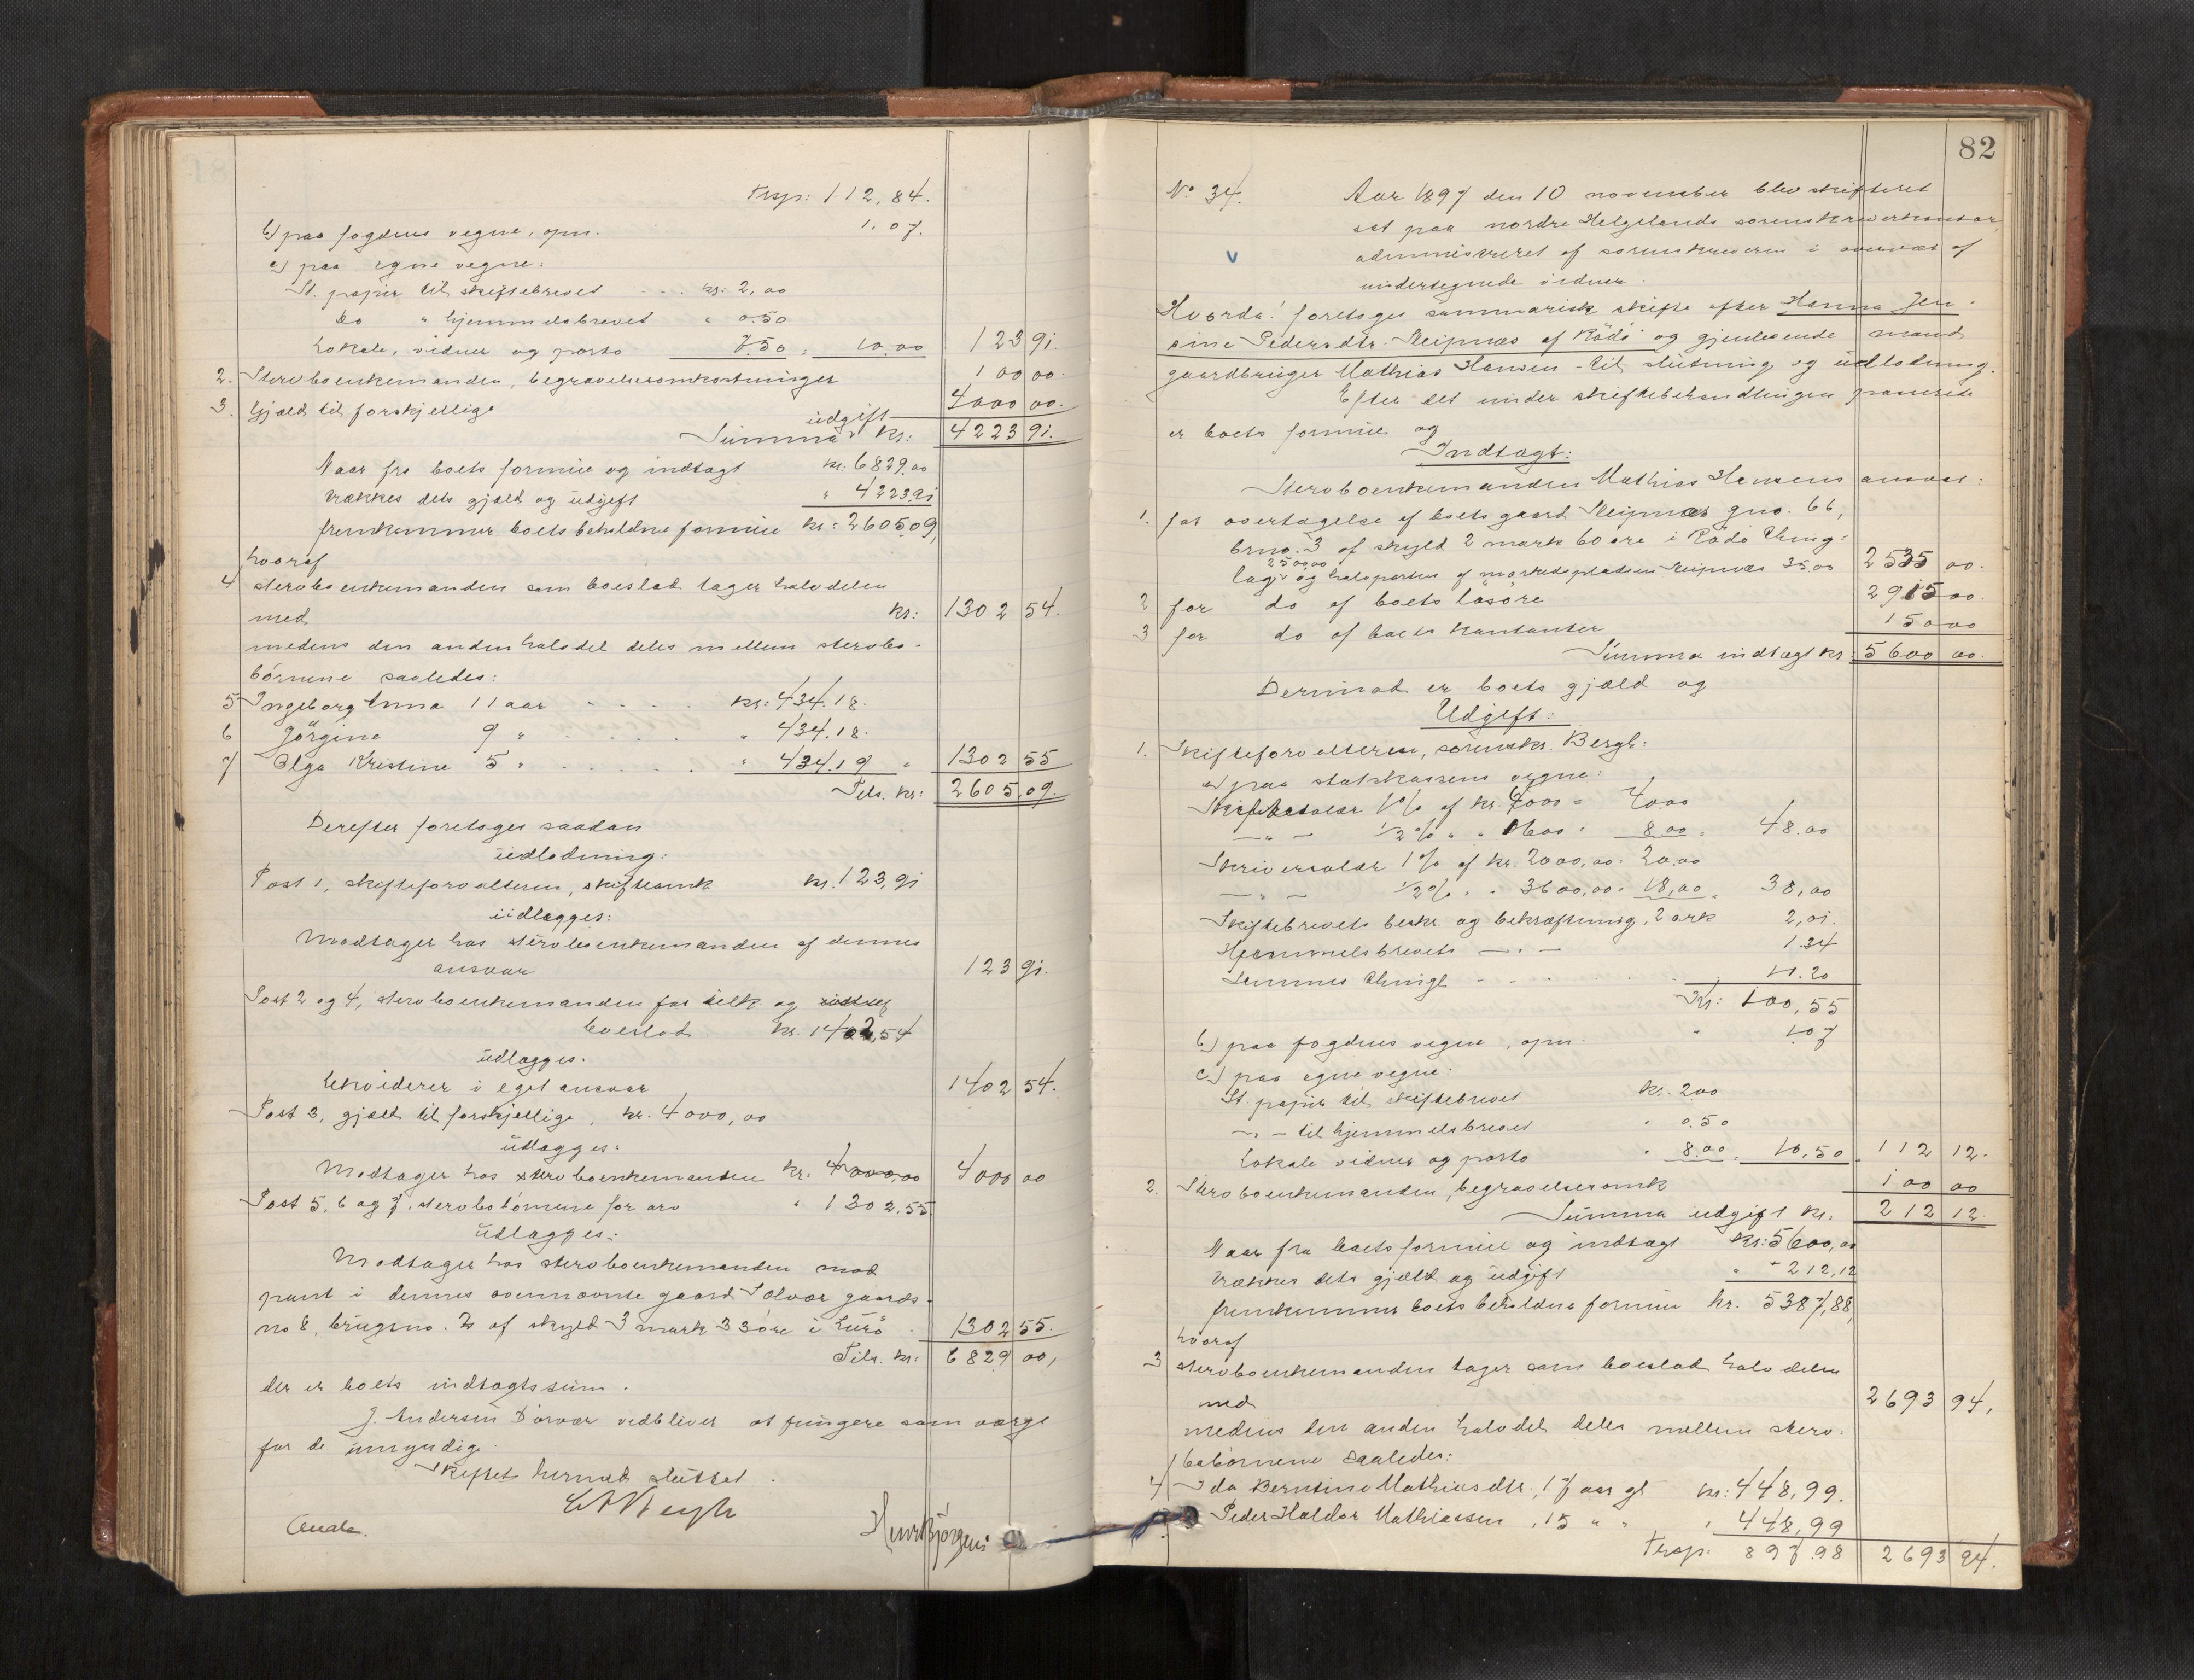 Trsp: 112,84.
b) paa fogdens vegne, opn. 1.07.
c) paa egne vegne:
St. papir til skiftebrevet kr: 2,00
Do " hjemmelsbrevet " 0.50
Lokale, vidner og porto 7.50 = 10.00 123 91.
2. Sterboenkemanden, begravelsesomkostninger 100 00.
3. Gjæld til forskjellige 4000 00.
Summa udgift kr: 4223 91.
Naar fra boets formue og indtægt kr. 6829.00
trækkes dets gjæld og udgift " 4223.91
fremkommer boets beholdne formue kr: 2605,09,
hvoraf
4 sterboenkemanden som boeslod tager halvdelen
med kr: 1302 54.
medens den anden halvdel deles mellem sterbo-
börnene saaledes:
5 Ingeborg Anna 11 aar kr: 434.18.
6 Jörgine 9 " " 434.18.
7 Olga Kristine 5 " " 434.19 " 1302 55
Tils. kr: 2605,09.
Derefter foretoges saadan
udlodning:
Post 1, skifteforvalteren, skifteomk kr. 123,91
udlægges:
Modtager hos sterboenkemanden af dennes
ansvar 123 91.
Post 2 og 4, sterboenkemanden for tilk og
boeslod kr. 1402,54
udlægges.
Likviderer i eget ansvar 1402 54.
Post 3, gjæld til forskjellige, kr. 4000,00
udlægges:
Modtager hos sterboenkemanden kr. 4000,00 4000 00
Post 5, 6 og 7, sterbobörnene for arv " 1302,55
udlægges:
Modtager hos sterboenkemanden mod
pant i dennes ovennævnte gaard Solvær gaards-
no 8, brugsno. 2 af skyld 3 mark 33 öre i Lurö 1302 55.
Tils. kr: 6829 00,
der er boets indtægtssum.
J. Andersen Dörvær vedbliver at fungere som værge
for de umyndige.
Skiftet hermed sluttet.
82
No 34. Aar 1897 den 10 november blev skifteret
sat paa nordre Helgelands sorenskriverkontor,
administreret af sorenskriveren i overvær af
undertegnede vidner.
v
Hvorda! foretoges summarisk skifte efter Hanna Jen-
sine Pedersdtr. Reipnæs af Rödö og gjenlevende mand
gaardbruger Mathias Hansen - til slutning og udlodning.
Efter det under skiftebehandlingen passerede
er boets formue og
Indtægt:
Sterboenkemanden Mathias Hansens ansvar:
1. for overtagelse af boets gaard Reipnæs gno. 66,
brno. 3 af skyld 2 mark 60 öre i Rödö thing-
2500.00
lag og halvparten af markedspladsen Reipnæs 35.00 2535 00.
2 for do af boets lösöre 2915 00.
3 for do af boets kontanter 150 00
Summa indtægt kr: 5600 00.
Derimod er boets gjæld og
Udgift:
1. Skifteforvalteren, sorenskr. Bergh:
a) paa statskassens vegne:
Skiftesalær 1% af kr. 4000 = 40.00
— " — 1/2% " " 1600 " 8.00 = 48.00
Skriversalær 1% af kr. 2000,00 = 20.00
— " — 1/2% " " 3600,00 = 18,00 = 38,00
Skiftebrevets beskr. og bekræftning, 2 ark 2,01.
Hjemmelsbrevets — " — 1.34
Sammes thingl 11.20
Kr: 100,55
b) paa fogdens vegne, opn. " 1.07
c) paa egne vegne:
St. papir til skiftebrevet kr. 2.00
— " — til hjemmelsbrevet " 0.50
Lokale vidner og porto " 8.00 = 10,50 112 12.
2. Sterboenkemanden, begravelsesomk 100 00
Summa udgift kr: 212 12.
Naar fra boets formue og indtægt kr: 5600,00
trækkes dets gjæld og udgift " 212,12
fremkommer boets beholdne formue kr. 5387,88,
hvoraf
3 sterboenkemanden tager som boeslod halvdelen
med 2693 94,
medens den anden halvdel deles mellem sterv-
bobörnene saaledes:
4) Ida Berntine Mathiasdtr., 17 aar gl kr: 448,99.
Peder Haldor Mathiassen, 15 " " " 448,99
Trsp. 897.98 2693 94.